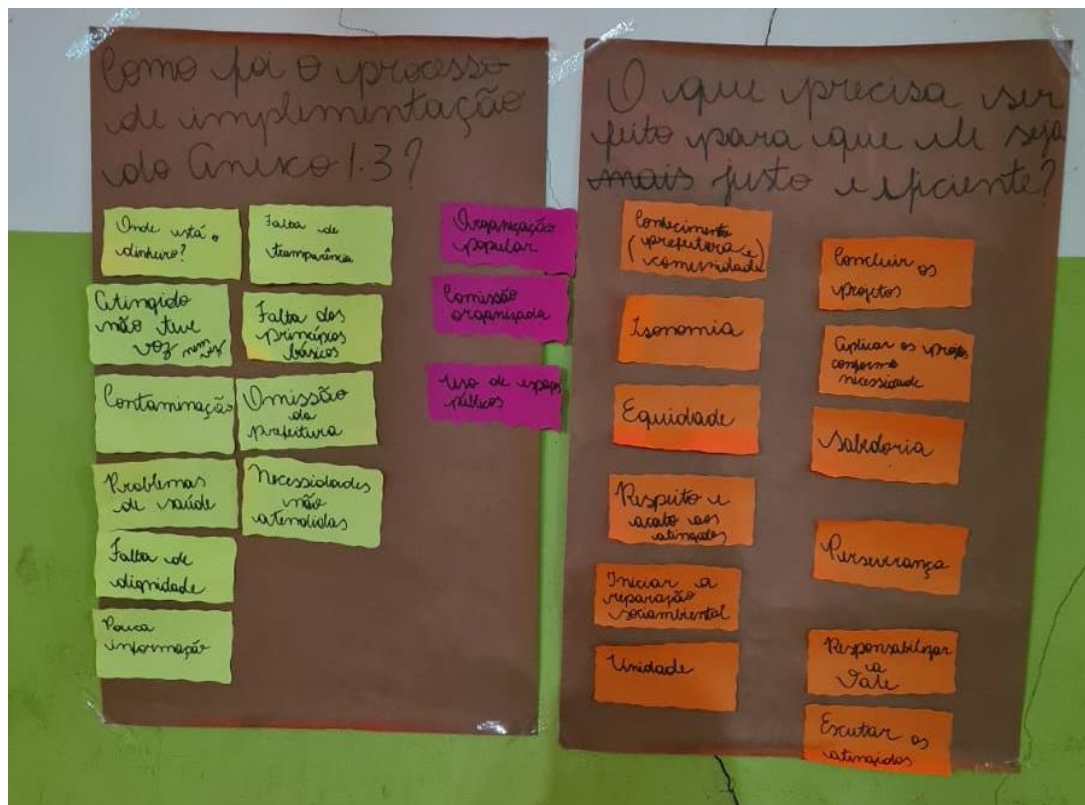 Como foi o processo
de implementação
do Anexo 1.3?
Onde está o
dinheiro?
Atingido
não teve
voz nem vez
Contaminação
Problemas
de saúde
Falta de
dignidade
Pouca
informação
Falta de
transparência
Falta dos
princípios
básicos
Omissão
da
prefeitura
Necessidades
não
atendidas
Organização
popular
Comissão
organizada
Uso de espaços
públicos
O que precisa ser
feito para que ele seja
mais justo e eficiente?
Conhecimento
(prefeitura e)
comunidade
Isonomia
Equidade
Respeito e
acato aos
atingidos
Iniciar a
reparação
sociambiental
Unidade
Concluir os
projetos
Aplicar os projetos
conforme
necessidade
Sabedoria
Perseverança
Responsabilizar
a
Vale
Escutar os
atingidos